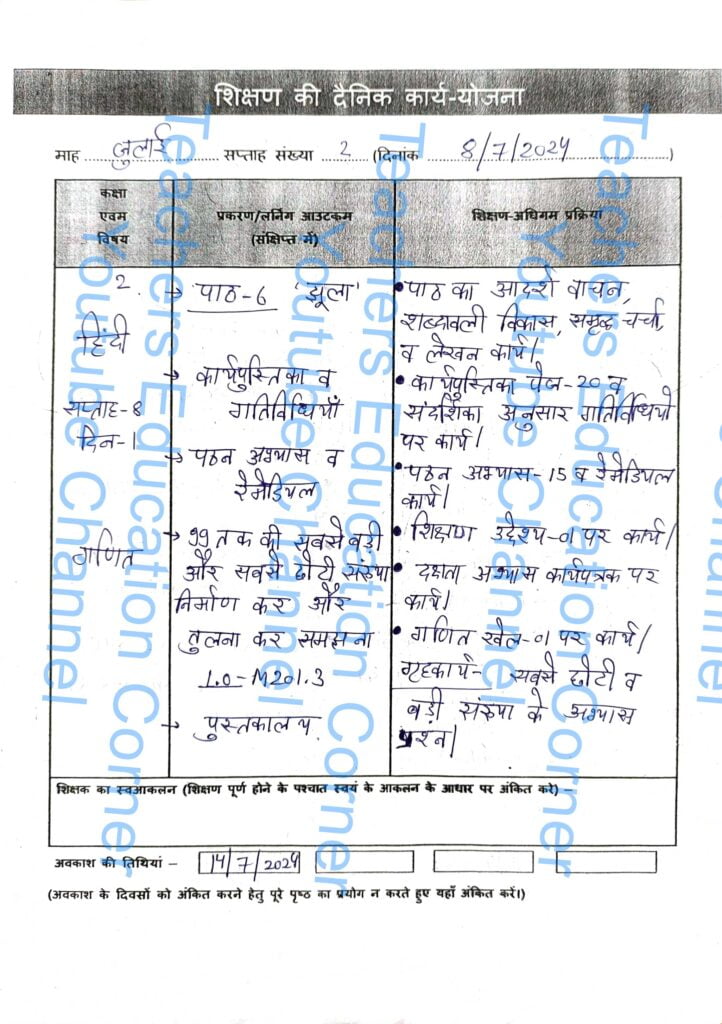 शिक्षण की दैनिक कार्य-योजना
माह जुलाई सप्ताह संख्या 2 (दिनांक 8/7/2024)
कक्षा
एवम
विषय
प्रकरण/लर्निंग आउटकम
(संक्षिप्त में)
शिक्षण-अधिगम प्रक्रिया
2
हिंदी
सप्ताह-8
दिन-1
→ पाठ-6 'झूला'
→ कार्यपुस्तिका व
गतिविधियाँ
→ पठन अभ्यास व
रेमेडियल
• पाठ का आदर्श वाचन,
शब्दावली विकास, समृद्ध चर्चा,
व लेखन कार्य।
• कार्यपुस्तिका पेज-20 व
संदर्शिका अनुसार गतिविधियों
पर कार्य।
• पठन अभ्यास-15 व रेमेडियल
कार्य।
गणित
→ 99 तक की सबसे बड़ी
और सबसे छोटी संख्या
निर्माण कर और
तुलना कर समझना
L.O-M201.3
→ पुस्तकालय
• शिक्षण उद्देश्य-01 पर कार्य।
• दक्षता अभ्यास कार्यपत्रक पर
कार्य।
• गणित खेल-01 पर कार्य।
गृहकार्य- सबसे छोटी व
बड़ी संख्या के अभ्यास
प्रश्न।
शिक्षक का स्वआकलन (शिक्षण पूर्ण होने के पश्चात स्वयं के आकलन के आधार पर अंकित करे) –
अवकाश की तिथियां – 14/7/2024
(अवकाश के दिवसों को अंकित करने हेतु पूरे पृष्ठ का प्रयोग न करते हुए यहाँ अंकित करें।)
Teachers Education Corner
Youtube Channel
Teachers Education Corner
Youtube Channel
Teachers Education Corner
Youtube Channel